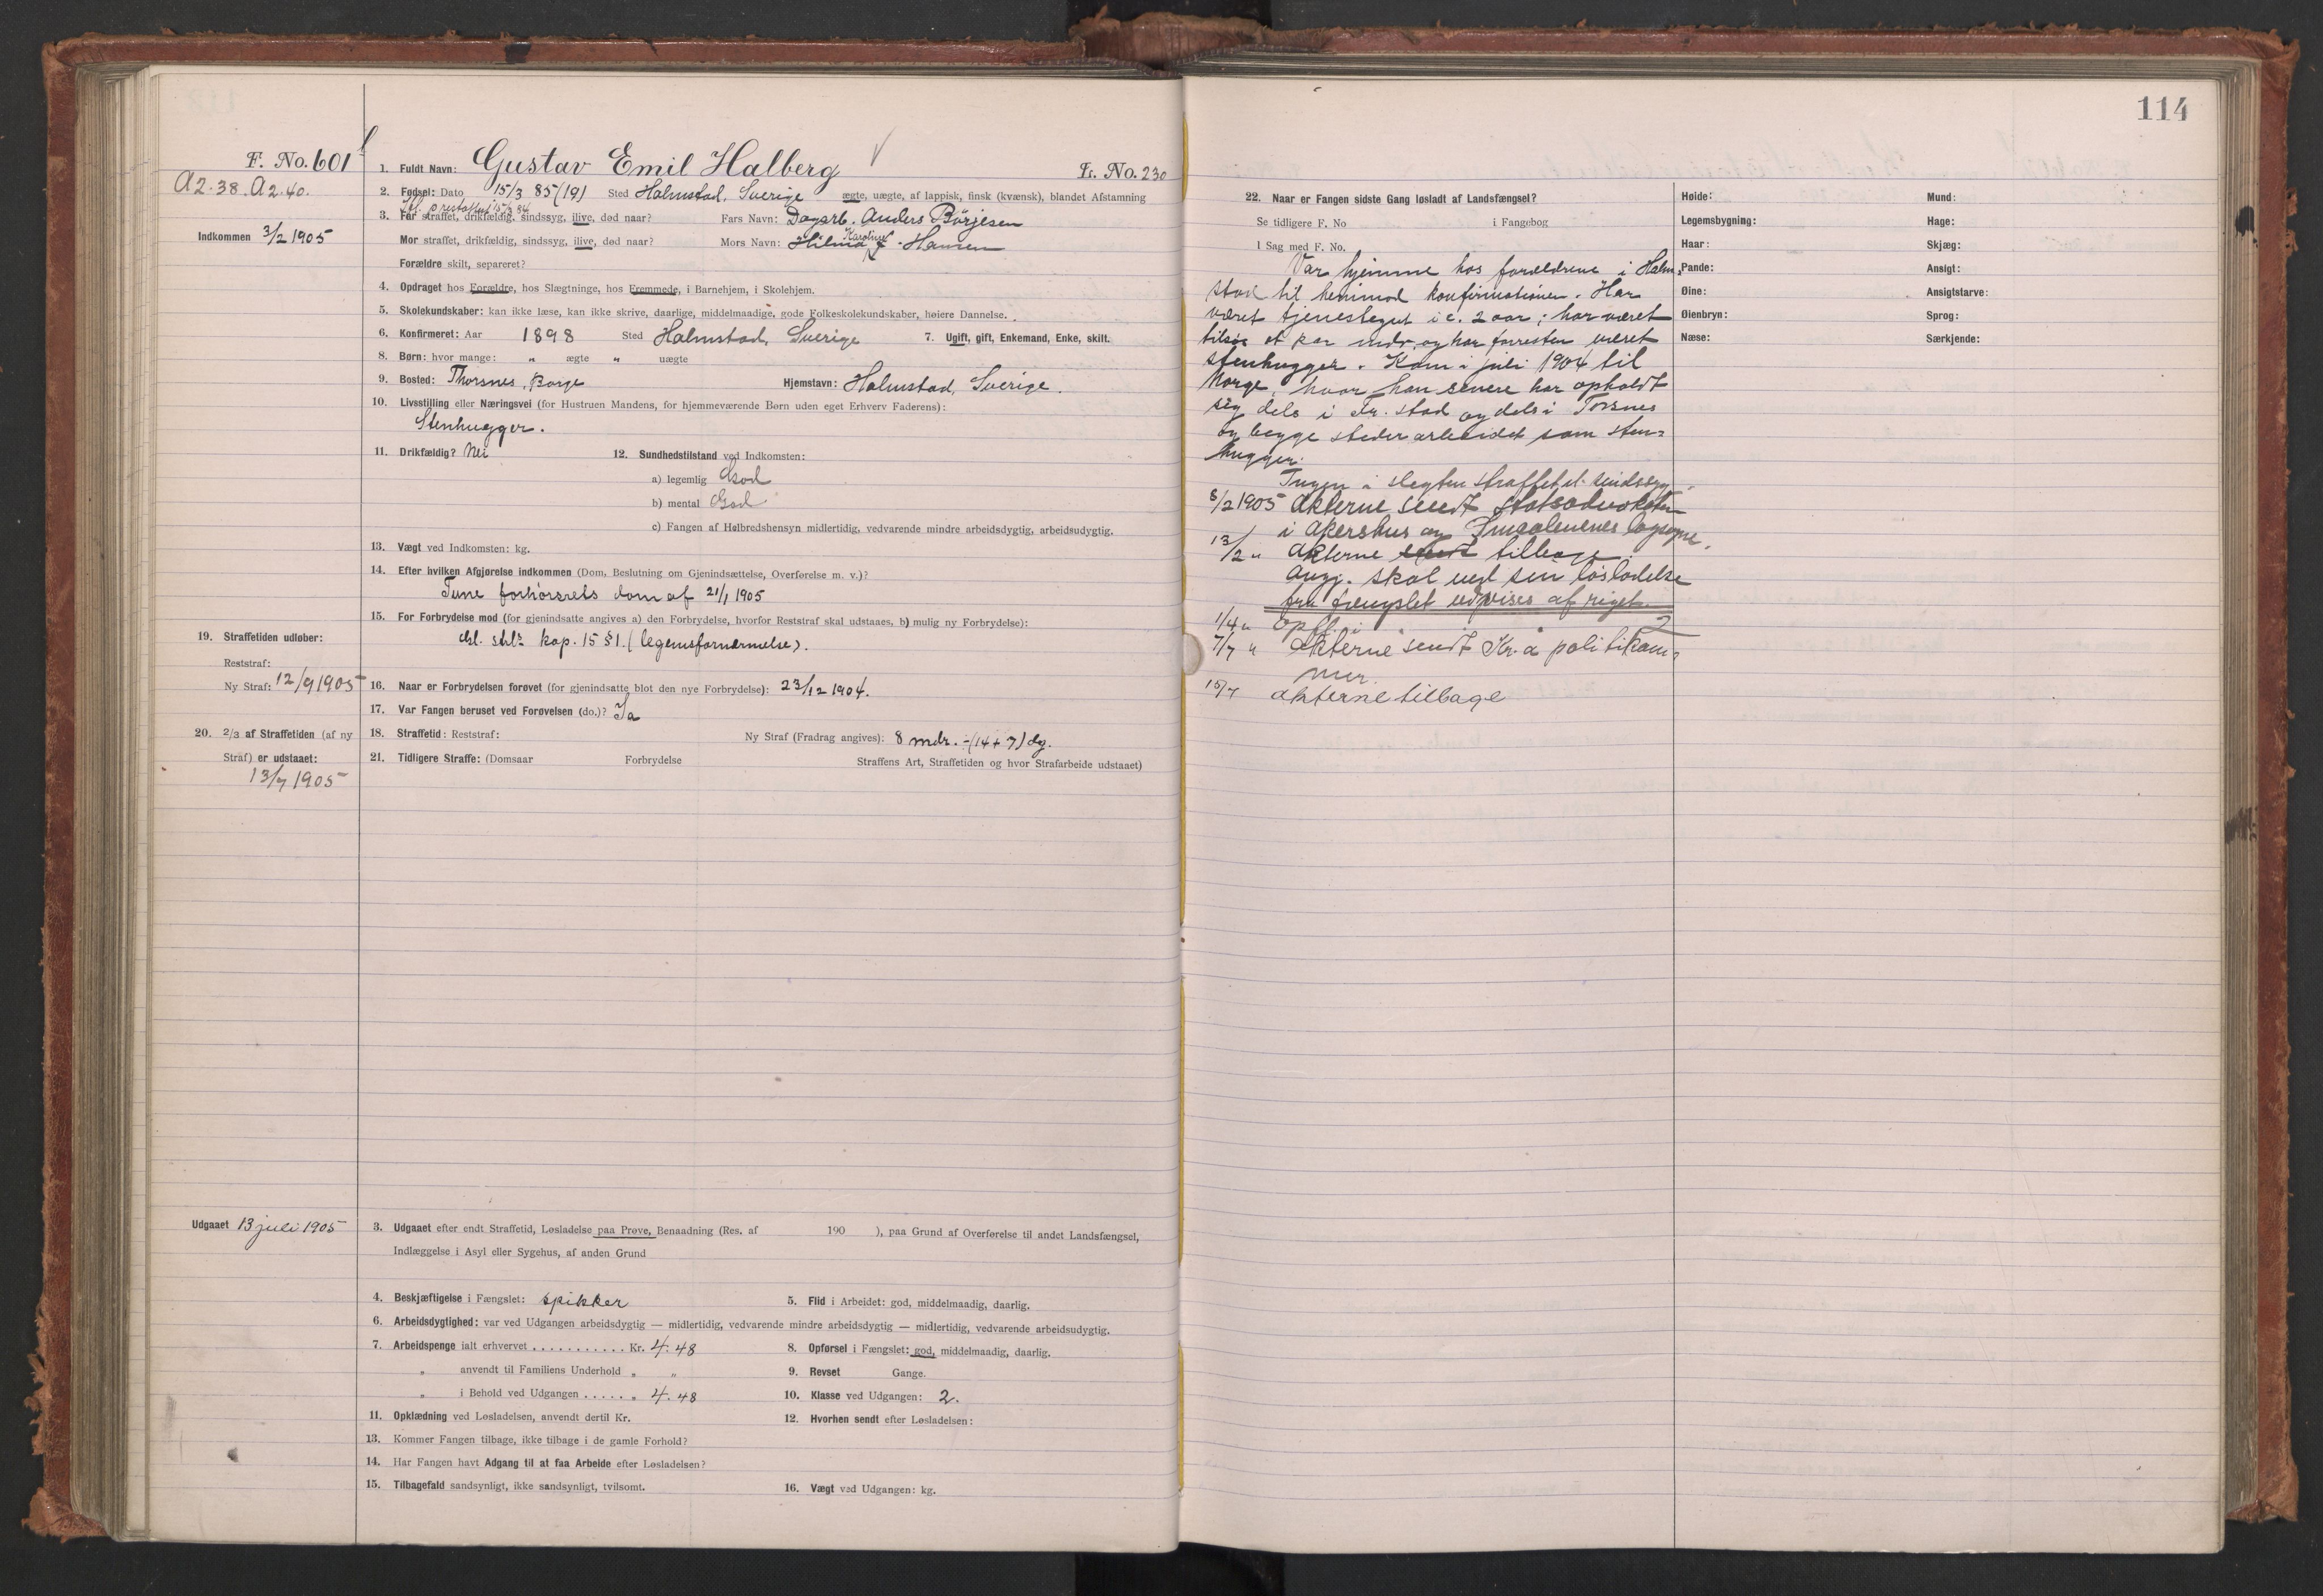 114
F. No. 601
A2.38. A2.40.
Indkommen 3/2 1905
1. Fuldt Navn: Gustav Emil Halberg Fr. No. 230
2. Fødsel: Dato 15/3 85 (19) Sted Halmstad, Sverige ægte, uægte, af lappisk, finsk (kvænsk), blandet Afstamning
15/3 84
3. Far straffet, drikfældig, sindssyg, ilive, død naar? Fars Navn: Dagarb. Anders Börjesen
Mor straffet, drikfældig, sindssyg, ilive, død naar? Mors Navn: Hilma Karoline f. Hansen
Forældre skilt, separeret?
4. Opdraget hos Forældre, hos Slægtninge, hos Fremmede, i Barnehjem, i Skolehjem.
5. Skolekundskaber: kan ikke læse, kan ikke skrive, daarlige, middelmaadige, gode Folkeskolekundskaber, høiere Dannelse.
6. Konfirmeret: Aar 1898 Sted Halmstad, Sverige 7. Ugift, gift, Enkemand, Enke, skilt.
8. Børn: hvor mange: " ægte " uægte
9. Bosted: Thorsnes, Borge Hjemstavn: Halmstad, Sverige.
10. Livsstilling eller Næringsvei (for Hustruen Mandens, for hjemmeværende Børn uden eget Erhverv Faderens):
Stenhugger.
11. Drikfældig? Nei 12. Sundhedstilstand ved Indkomsten:
a) legemlig God
b) mental God
c) Fangen af Helbredshensyn midlertidig, vedvarende mindre arbeidsdygtig, arbeidsudygtig.
13. Vægt ved Indkomsten: kg.
14. Efter hvilken Afgjørelse indkommen (Dom, Beslutning om Gjenindsættelse, Overførelse m. v.)?
Tune forhørsrets dom af 21/1 1905
15. For Forbrydelse mod (for gjenindsatte angives a) den Forbrydelse, hvorfor Reststraf skal udstaaes, b) mulig ny Forbrydelse):
kap. 15 § 1. (legemsfornærmelse).
19. Straffetiden udløber:
Reststraf:
Ny Straf: 12/9 1905
16. Naar er Forbrydelsen forøvet (for gjenindsatte blot den nye Forbrydelse): 23/12 1904.
17. Var Fangen beruset ved Forøvelsen (do.)? Ja
20. 2/3 af Straffetiden (af ny
Straf) er udstaaet:
13/7 1905
18. Straffetid: Reststraf: Ny Straf (Fradrag angives): 8 mdr. ÷ (14 + 7) dg.
21. Tidligere Straffe: (Domsaar Forbrydelse Straffens Art, Straffetiden og hvor Strafarbeide udstaaet)
Udgaaet 13 juli 1905
3. Udgaaet efter endt Straffetid, Løsladelse paa Prøve, Benaadning (Res. af 190 ), paa Grund af Overførelse til andet Landsfængsel,
Indlæggelse i Asyl eller Sygehus, af anden Grund
4. Beskjæftigelse i Fængslet: spikker 5. Flid i Arbeidet: god, middelmaadig, daarlig.
6. Arbeidsdygtighed: var ved Udgangen arbeidsdygtig — midlertidig, vedvarende mindre arbeidsdygtig — midlertidig, vedvarende arbeidsudygtig.
7. Arbeidspenge ialt erhvervet . . . . . . . . . . . Kr. 4.48 8. Opførsel i Fængslet: god, middelmaadig, daarlig.
" anvendt til Familiens Underhold " " 9. Revset Gange.
" i Behold ved Udgangen . . . . . " 4.48 10. Klasse ved Udgangen: 2.
11. Opklædning ved Løsladelsen, anvendt dertil Kr. 12. Hvorhen sendt efter Løsladelsen:
13. Kommer Fangen tilbage, ikke tilbage i de gamle Forhold?
14. Har Fangen havt Adgang til at faa Arbeide efter Løsladelsen?
15. Tilbagefald sandsynligt, ikke sandsynligt, tvilsomt. 16. Vægt ved Udgangen: kg.
22. Naar er Fangen sidste Gang løsladt af Landsfængsel?
Se tidligere F. No i Fangebog
I Sag med F. No.
Var hjemme hos forældrene i Halm-
stad til henimod konfirmationen. Har
været tjenestegut i c. 2 aar; har været
tilsjøs et par mdr. og har forresten været
stenhugger. Kom i juli 1904 til
Norge, hvor han senere har opholdt
sig dels i Fr.stad og dels i Torsnes
og begge steder arbeidet som sten-
hugger.
Ingen i slegten straffet el. sindssyg.
8/2 1905 Akterne sendt statsadvokaten
i Akershus og Smaalenenes lagsogne.
13/2 " Akterne sendt tilbage.
Angj. skal ved sin løsladelse
fra fængslet udvises af riget.
1/4 " Opfl. i 2
7/7 " Akterne sendt Kr.a politikam-
mer.
15/7 akterne tilbage
Høide:
Legemsbygning:
Haar:
Pande:
Øine:
Øienbryn:
Næse:
Mund:
Hage:
Skjæg:
Ansigt:
Ansigtstarve:
Sprog:
Særkjende: